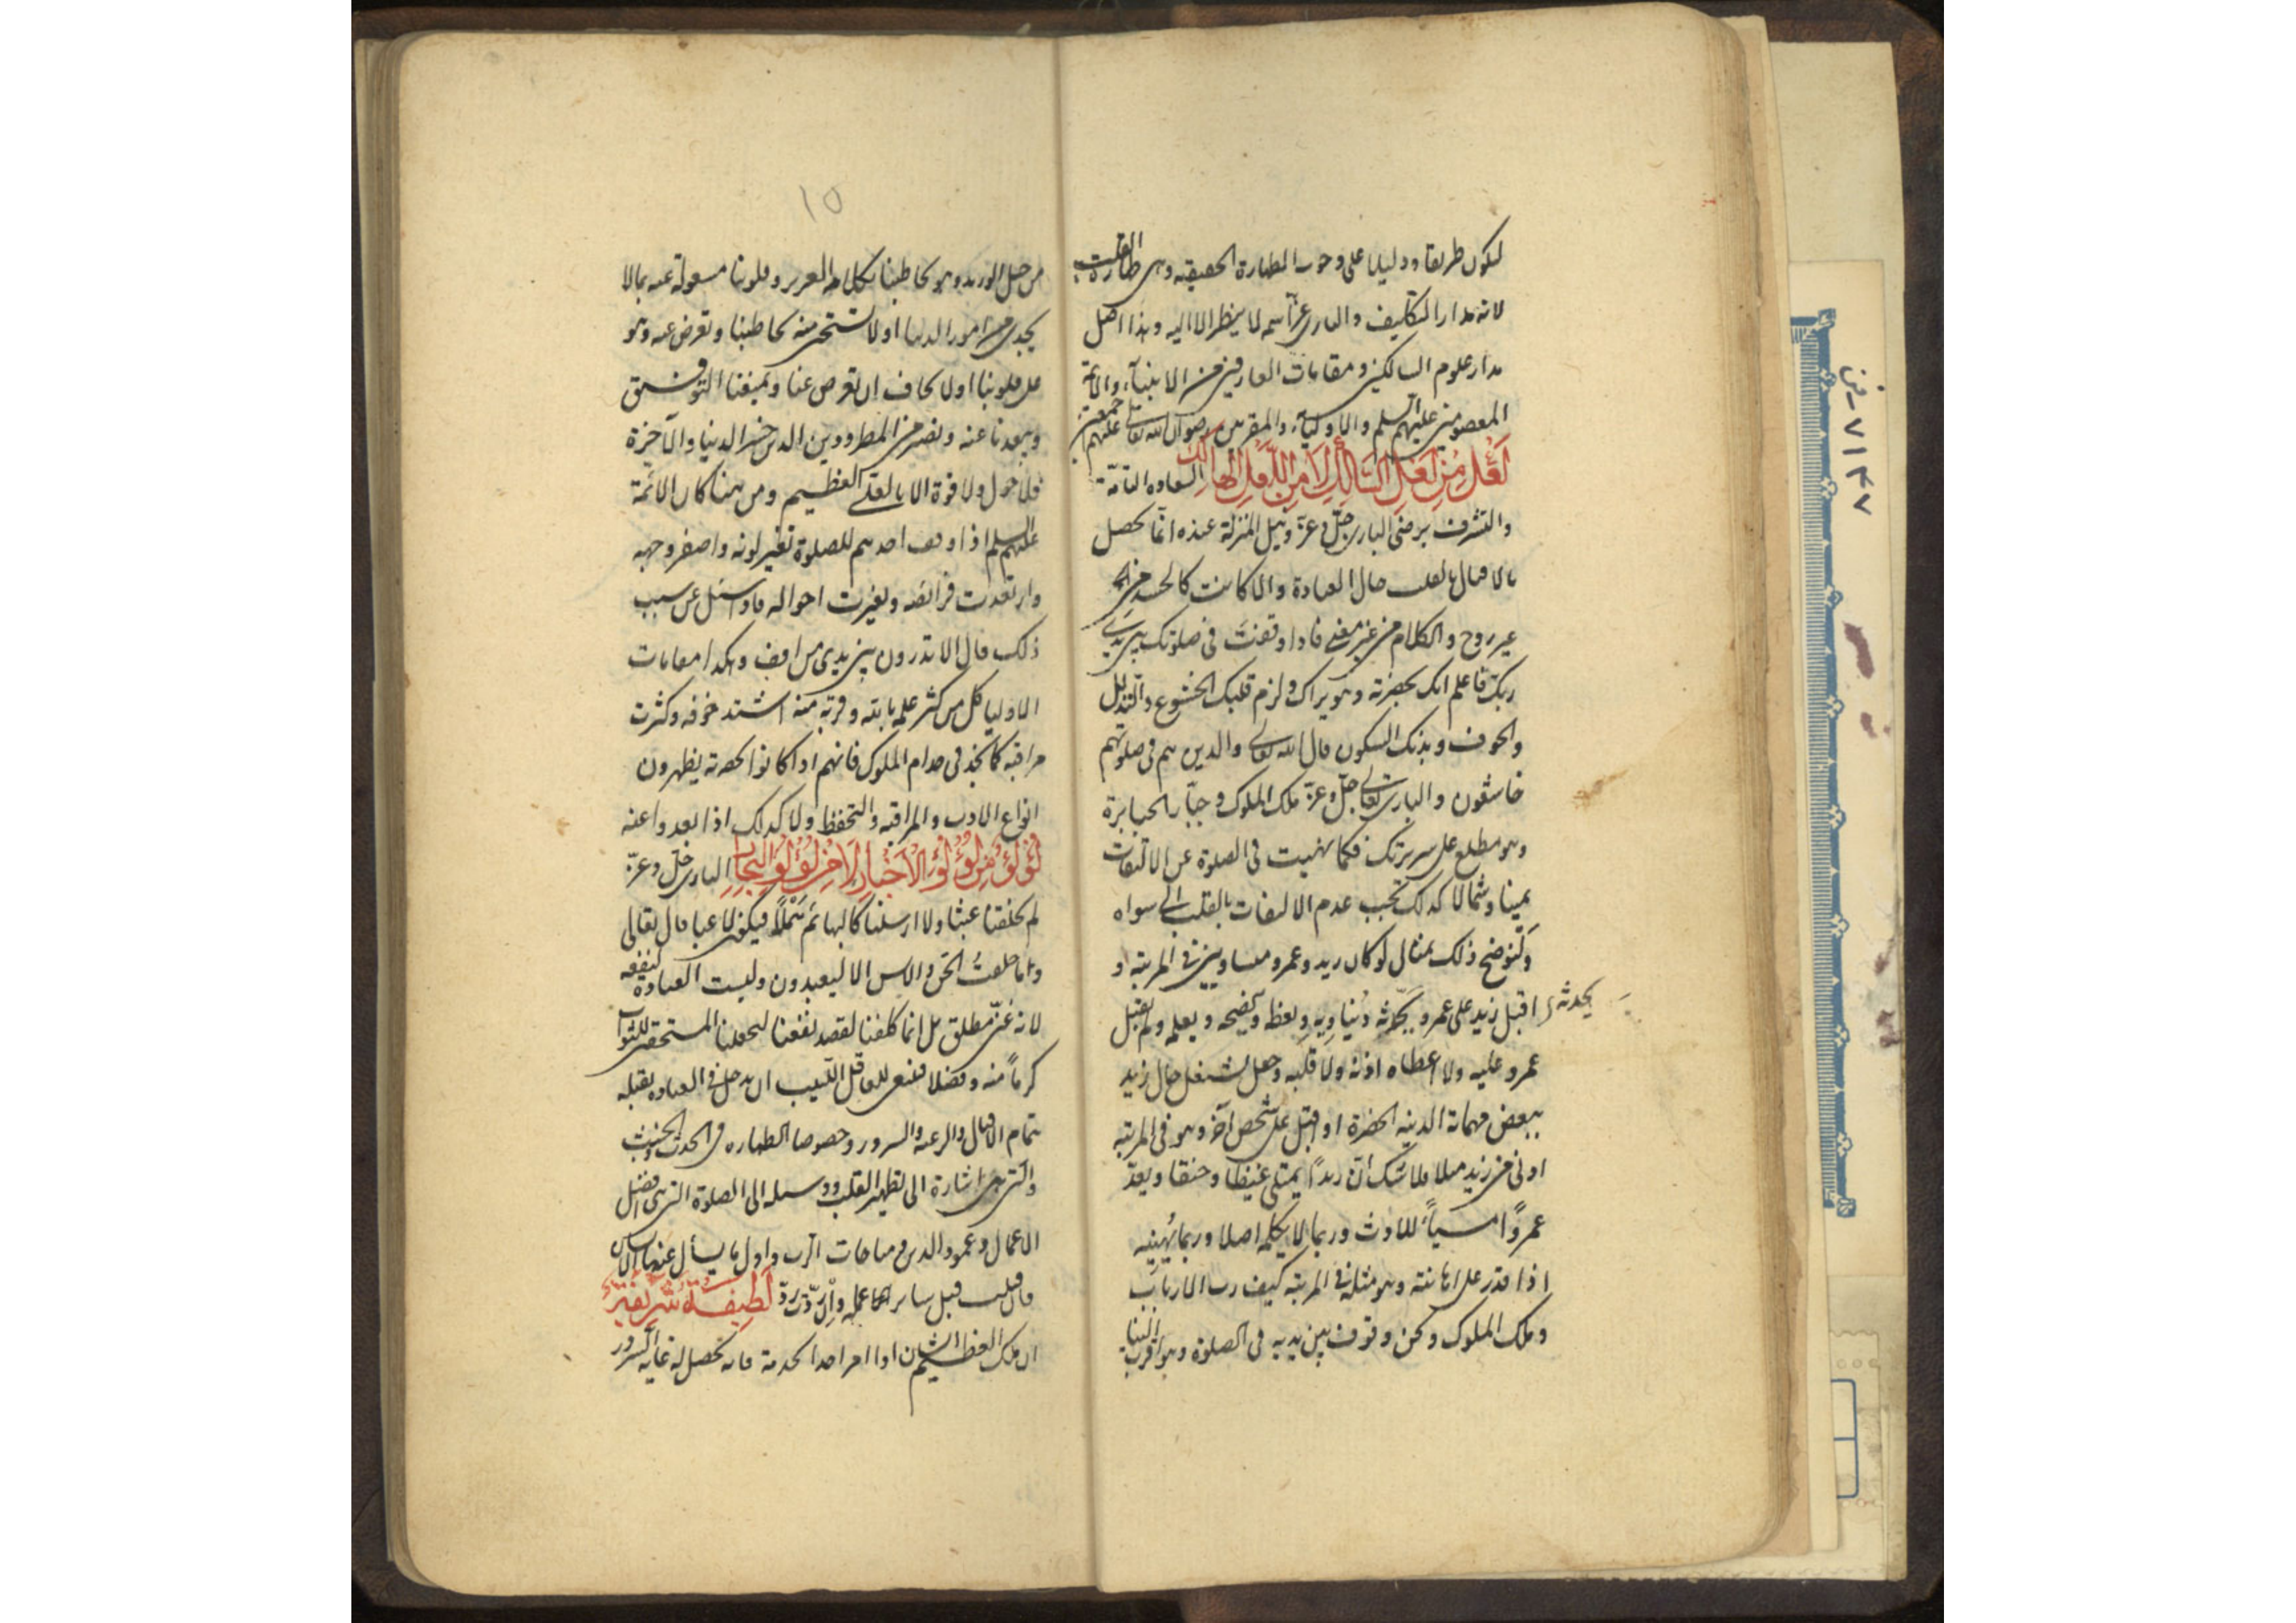 ليكون طريقا ودليلا على وجوب الطهارة الحقيقية وهى طهارة القلب
لانه مدار التكليف والبارى عزّ اسمه لا ينظر الا اليه وهذا اصل
مدار علوم السالكين ومقامات العارفين من الانبيآء والائمة
المعصومين عليهم السلم والاوليآء والمقربين رضوان الله تعالى عليهم اجمعين
السعادة التامّة
والتشرف برضى البارى جلّ وعزّ ونيل المنزلة عنده انّما تحصل
بالاقبال بالقلب حال العبادة والا كانت كالجسد من
غير روح والكلام من غير معنى فاذا وقفت فى صلوتك بين يدى
ربك فاعلم انك بحضرته وهو يراك ولزم قلبك الخشوع والتذلل
والخوف وبدنك السكون قال الله تعالى والذين هم فى صلوتهم
خاشعون والبارى تعالى جلّ وعزّ ملك الملوك وجبّار الجبابرة
وهو مطلع على سريرتك فكما نهيت فى الصلوة عن الالتفات
يمينا وشمالا كذلك تجب عدم الالتفات بالقلب الى سواه
ولنوضح ذلك بمثال لو كان زيد وعمرو متساويين فى المرتبة و
اقبل زيد على عمرو يحدثه دنياويه ويعظه وينصحه ويعلمه ولم يقبل
يحدثه
عمرو عليه ولا اعطاه اذنه ولا قلبه وجعل يشتغل حال زيد
ببعض مهماته الدنيه الحضرة او اقبل على شخص آخر وهو فى المرتبة
ادنى من زيد مثلا فلا شك انّ زيداً يمتلى غيظا وحنقا ويعدّ
عمرواً مسيأً للادب وربما لا يكلمه اصلا وربما يُهينه
اذا قدر على اهانته وهو مثله فى المرتبة كيف رب الارباب
وملك الملوك ونحن وقوف بين يديه فى الصلوة وهو اقرب الينا
١٥
من حبل الوريد وهو يخاطبنا بكلامه العزيز وقلوبنا مشغولة عنه بما لا
يجدى من امور الدنيا اولا نستحى منه يخاطبنا ونعرض عنه وهو
على قلوبنا اولا نخاف ان يعرض عنا ويمنعنا التوفيق
ويبعدنا عنه ونصير من المطرودين الذين خسر الدنيا والآخرة
فلا حول ولا قوة الا بالله العلى العظيم ومن هنا كان الائمّة
عليهم السلم اذا وقف احدهم للصلوة تغير لونه واصفر وجهه
وارتعدت فرائصه وتغيرت احواله فاذا سئل عن سبب
ذلك قال الا تدرون بين يدى من اقف وهكذا مقامات
الاوليا كل من كثر علمه بالله وقربه منه اشتد خوفه وكثرت
مراقبته كما تجد فى خدام الملوك فانهم اذا كانوا بحضرته يظهرون
انواع الادب والمراقبة والتحفظ ولا كذلك اذا بعدوا عنه
لؤلؤ من لؤلؤ الاخبار لا من لؤلؤ البحار البارى جلّ وعزّ
لم يخلقنا عبثا ولا ارسلنا كالبهائم هَمَلاً فيكون لاعبا قال تعالى
وما خلقت الجن والانس الا ليعبدون وليست العبادة لنفعه
لانه غنىّ مطلق بل انما كلفنا لقصد نفعنا ليجعلنا المستحقين للثواب
كرماً منه وفضلا فينبغى للعاقل اللبيب ان يدخل فى العبادة بقلبه
بتمام الاقبال والرغبة والسرور وخصوصا الطهارة من الحدث والخبث
والتى هى اشارة الى تطهير القلب ووسيلة الى الصلوة التى هى افضل
الاعمال وعمود الدين ومناجات الرب واول ما يسأل عنه الانسان
فان قبلت قبل سائر اعماله وان ردّت ردّ لطيفة شريفة
ان ملك العظيم الشان اذا امر احدا بخدمة فانه تحصل له غاية السرور